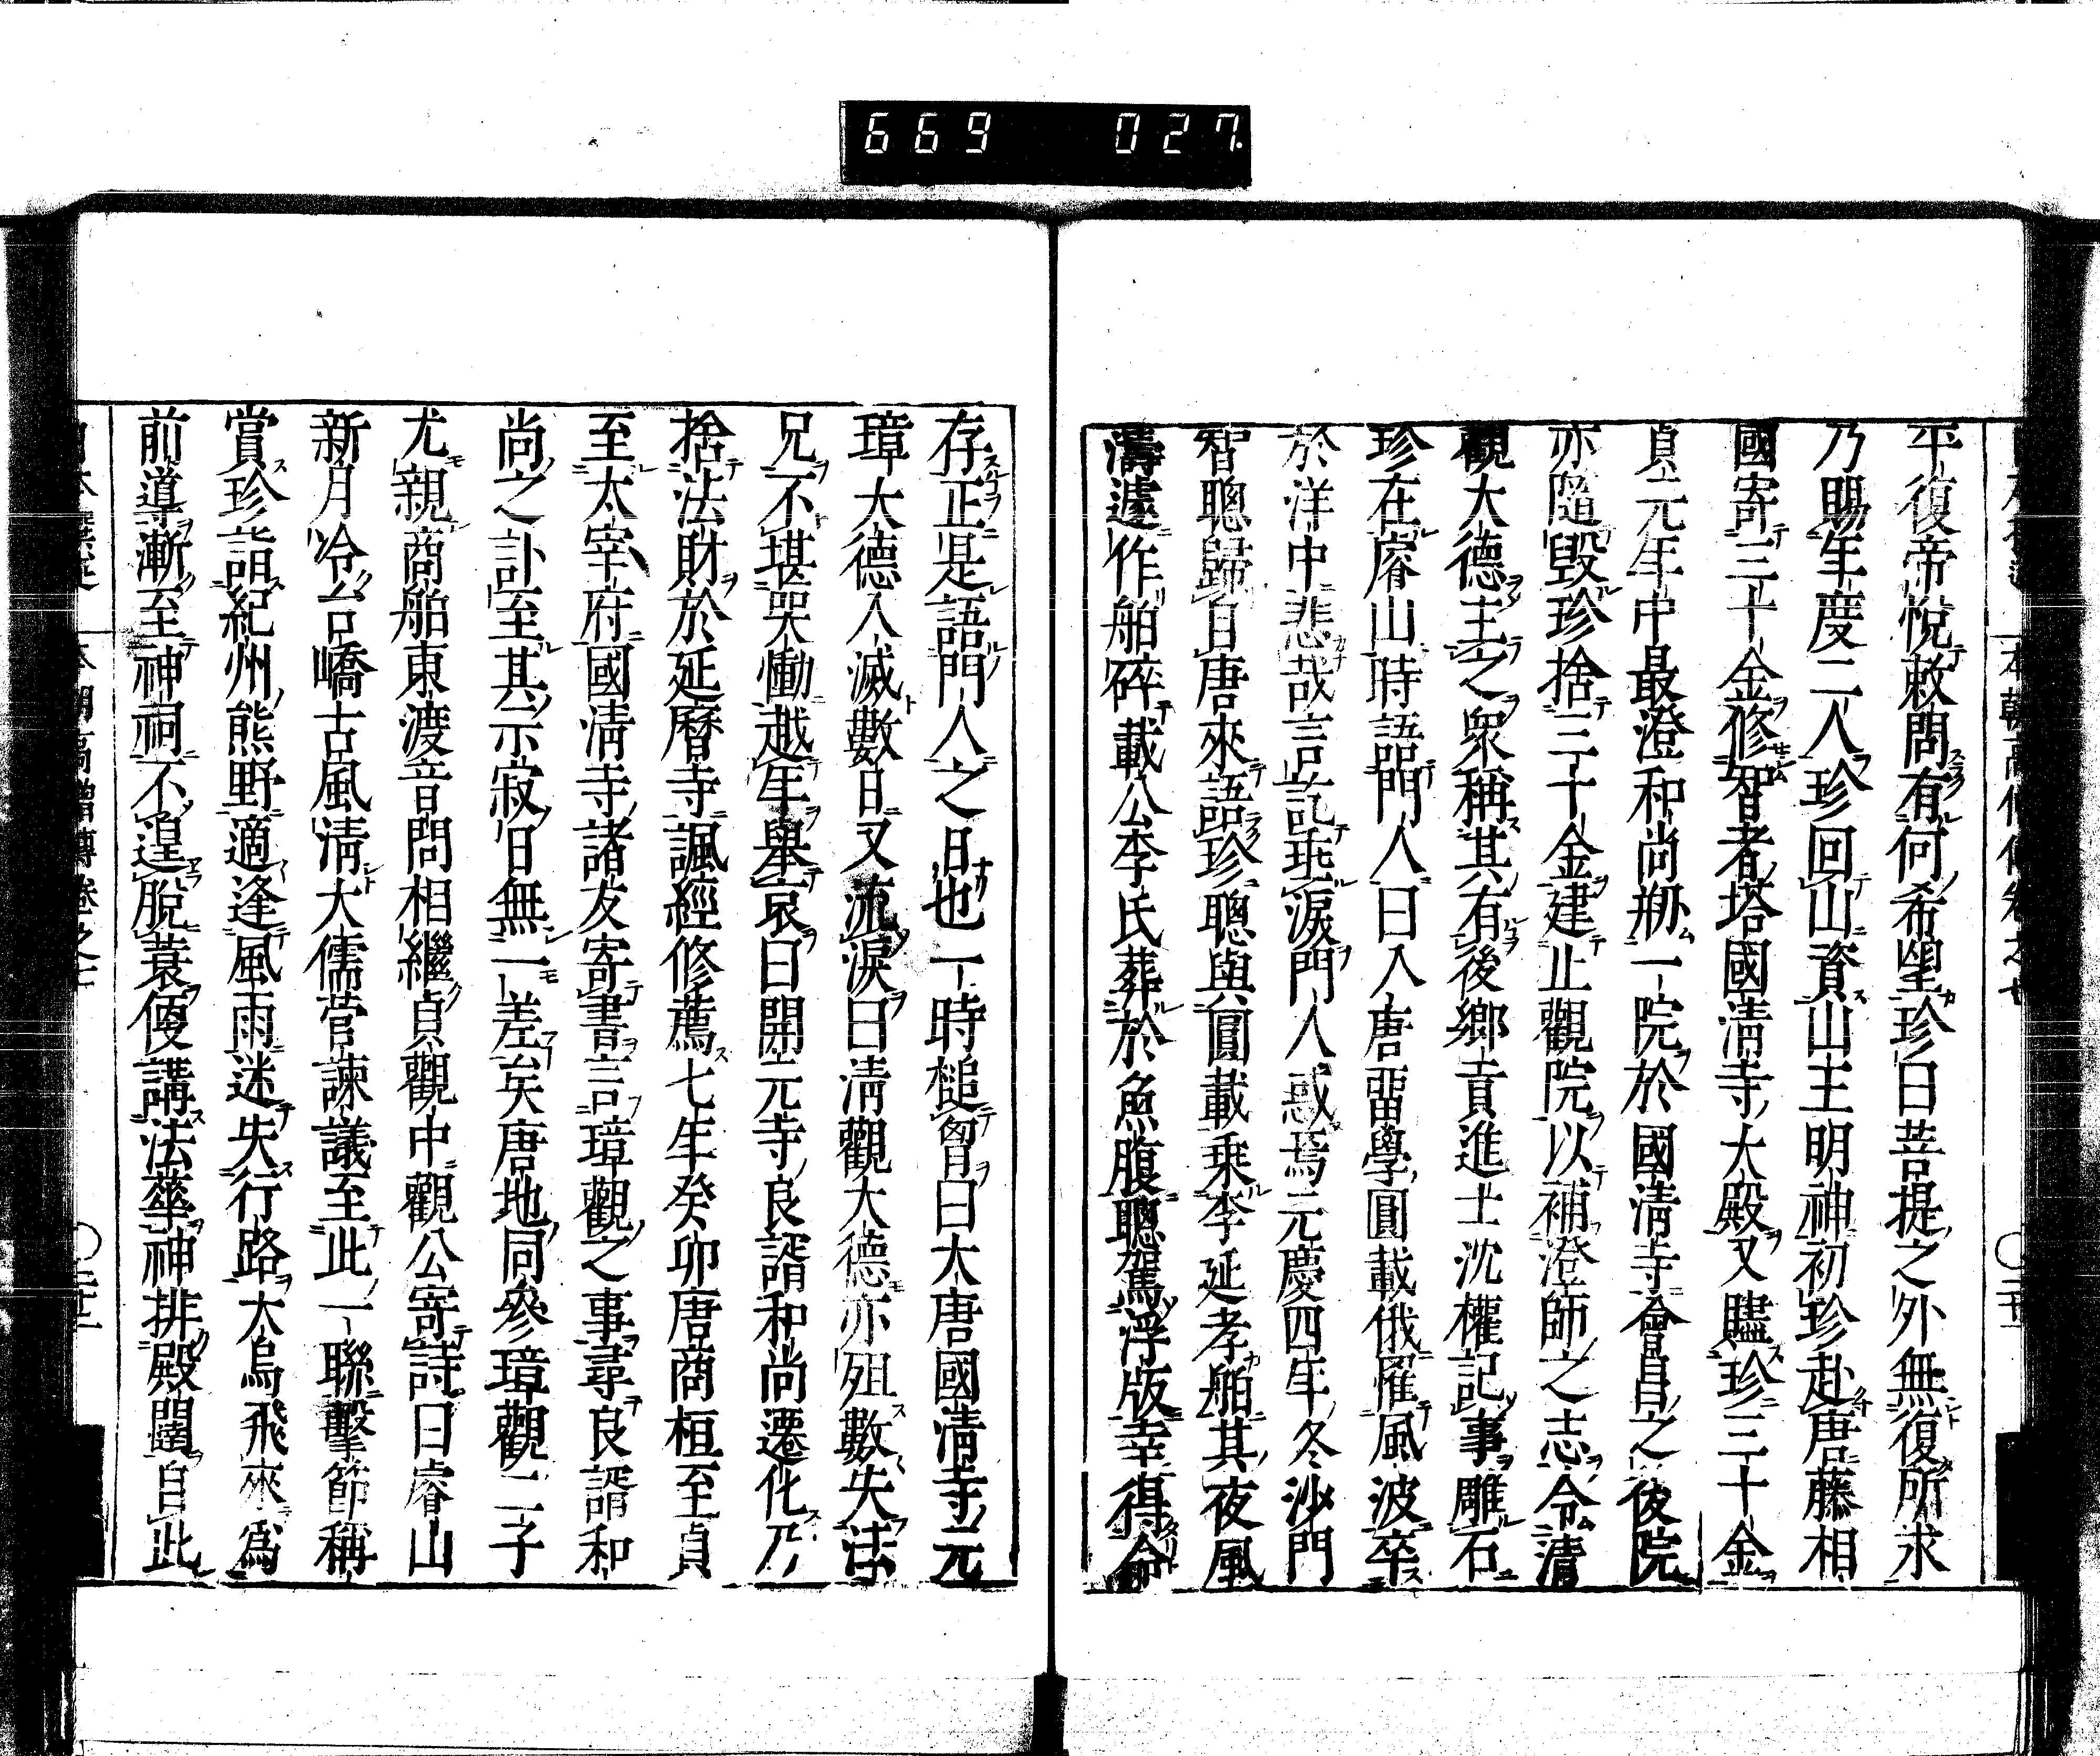 669 027.
平復帝悅敕問有何希望珍曰菩提之外無復所求
乃賜年度二人珍回山資山王明神初珍赴唐藤相
國寄三十金修智者塔國清寺大殿又贐珍三十金
貞元年中最澄和尚剏一院於國清寺會昌之後院
亦隨毀珍捨三十金建止觀院以補澄師之志令清
觀大德主之衆稱其有後鄉貢進士沈權記事雕石
珍在睿山時語門人曰入唐畱學圓載俄罹風波卒
於洋中悲哉言訖垂淚門人惑焉元慶四年冬沙門
智聰歸自唐來語珍聰與圓載乗李延孝舶其夜風
濤遽作舶碎載公李氏葬於魚腹聰駕浮版幸得命
存正是語門人之日也一時槌胷曰大唐國清寺元
璋大德入滅數日又流淚曰清觀大德亦殂數失法
兄不堪哭慟越年舉哀曰開元寺良諝和尚遷化乃
捨法財於延曆寺諷經修薦七年癸卯唐商桓至貞
至太宰府國清寺諸友寄書言璋觀之事尋良諝和
尚之訃至其示寂日無一差矣唐地同參璋觀二子
尤親商舶東渡音問相繼貞觀中觀公寄詩曰睿山
新月冷台嶠古風清大儒菅諫議至此一聯擊節稱
賞珍詣紀州熊野適逢風雨迷失行路大烏飛來爲
前導漸至神祠不遑脫蓑便講法華神排殿闢自此
本朝高僧傳卷之七